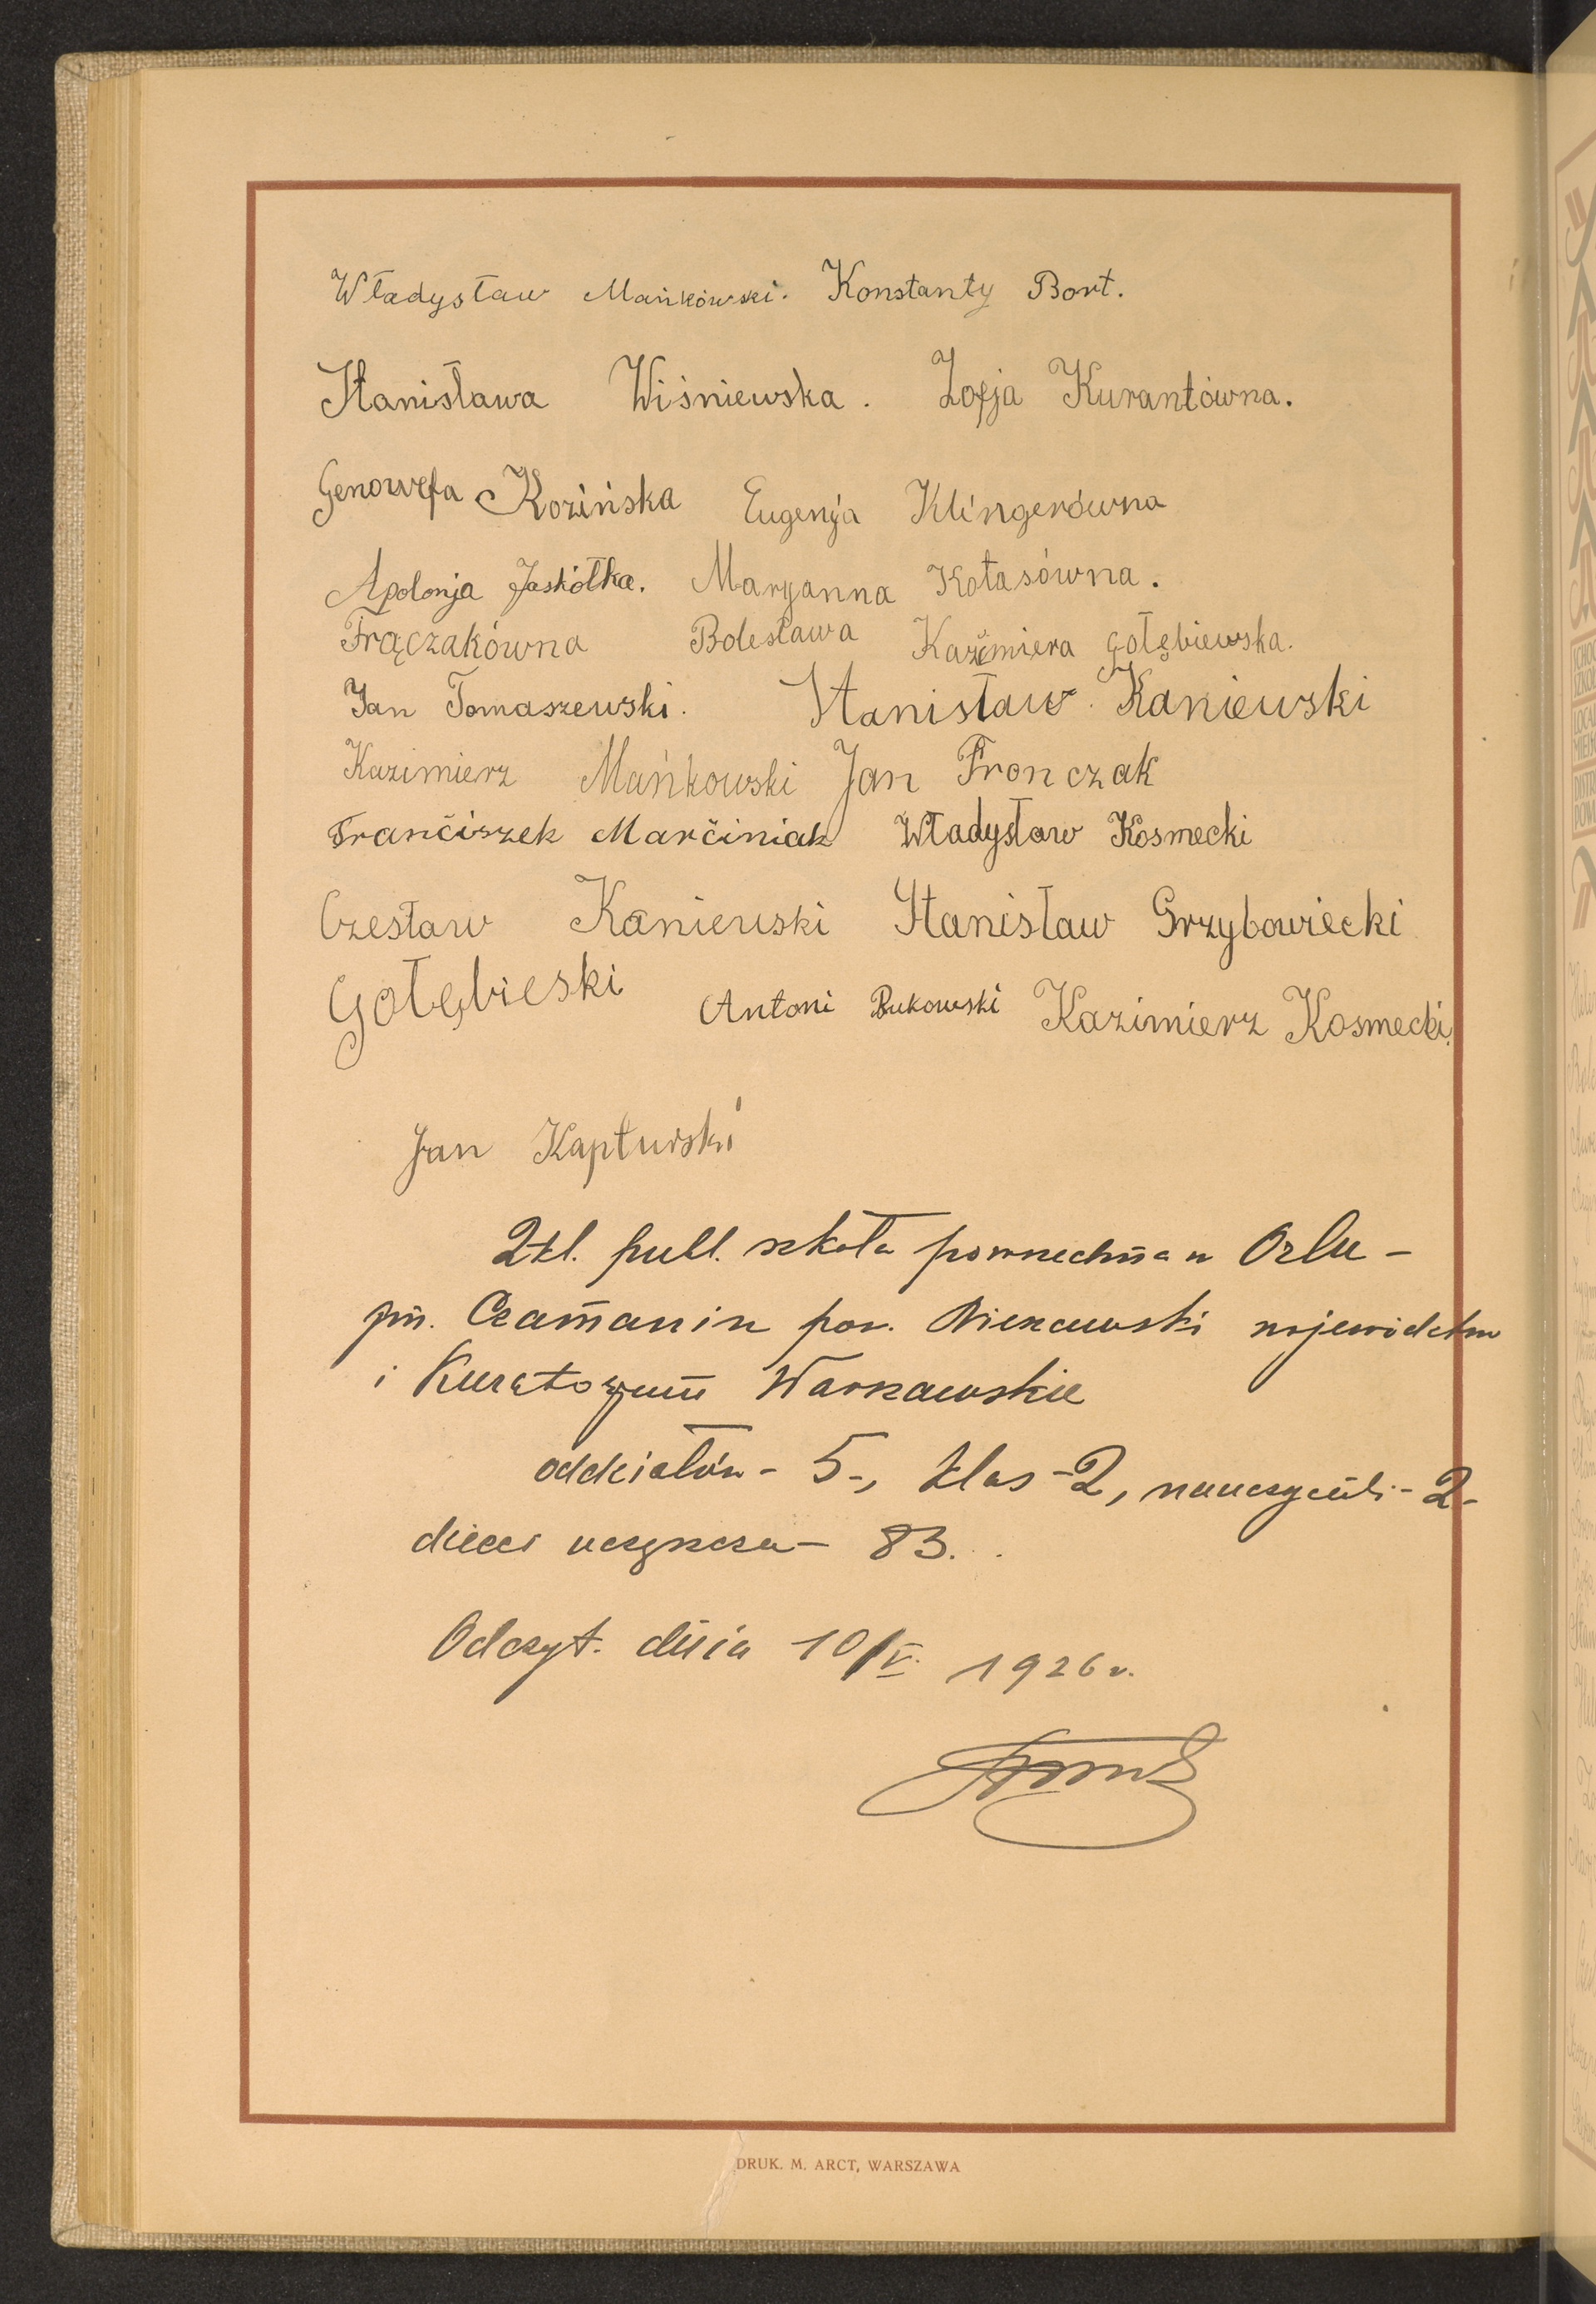 Władysław Mańkówski. Konstanty Bort.
Stanisława Wiśniewska. Zofja Kurantówna.
Genowefa Kozińska Eugenja Klingerówna
Apolonja Jaskółka. Maryanna Kotasówna.
Frączakówna Bolesława Kazimiera Gołębiewska.
Jan Tomaszewski. Stanisław Kaniewski
Kazimierz Mańkowski Jan Fronczak
Franciszek Marciniak Władysław Kosmecki
Czesław Kaniewski Stanisław Grzybowiecki
Gołębieski Antoni Bukowski Kazimierz Kosmecki.
Jan Kapturski
2 kl. publ. szkoła powszechna w Orlu -
gm. Czamanin pow. Nieszawski województwo
i Kuratorjum Warszawskie
oddziałów - 5-, klas - 2, nauczycieli - 2 -
dzieci uczęszcza - 83.
Odczyt. dnia 10/V. 1926 r.
DRUK. M. ARCT, WARSZAWA